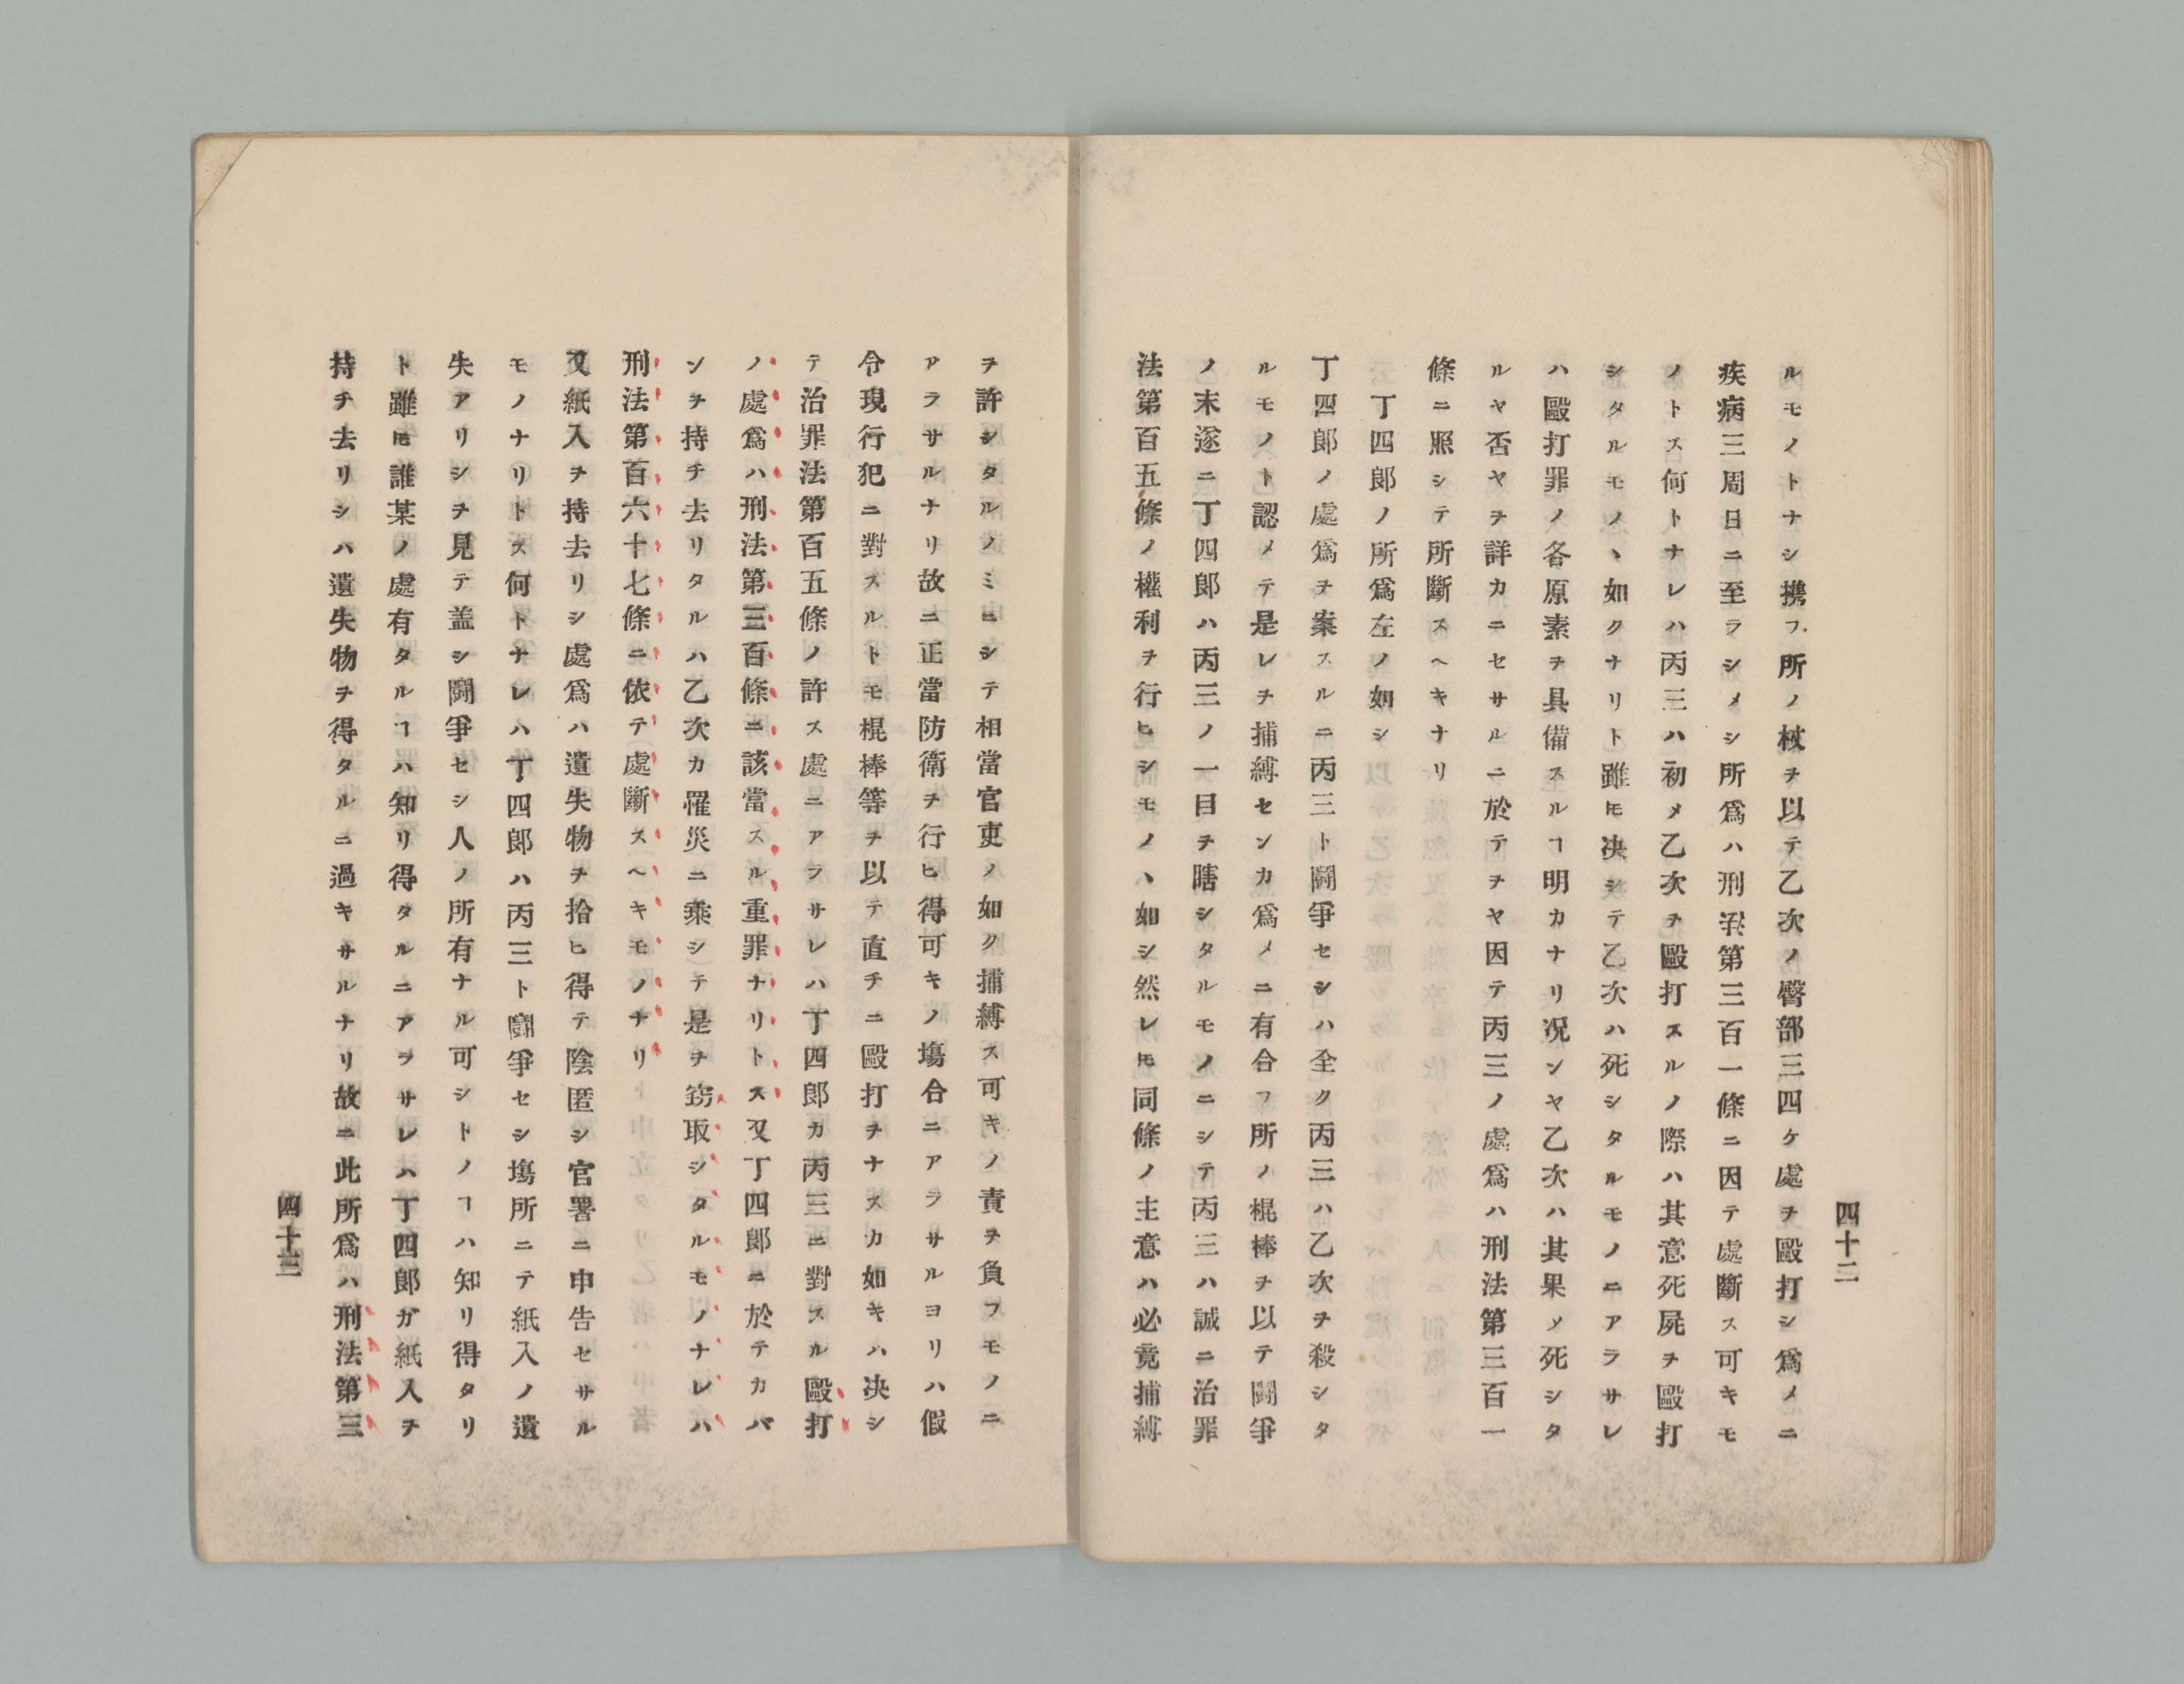 四十二
ルモノトナシ携フ所ノ杖ヲ以テ乙次ノ臀部三四ケ處ヲ毆打シ爲メニ
疾病三周日ニ至ラシメシ所爲ハ刑法第三百一條ニ因テ處斷ス可キモ
ノトス何トナレハ丙三ハ初メ乙次ヲ毆打スルノ際ハ其意死屍ヲ毆打
シタルモノヽ如クナリト雖ヒ决シテ乙次ハ死シタルモノニアラサレ
ハ毆打罪ノ各原素ヲ具備スルヿ明カナリ况ンヤ乙次ハ其果メ死シタ
ルヤ否ヤヲ詳カニセサルニ於テヲヤ因テ丙三ノ處爲ハ刑法第三百一
條ニ照シテ所斷スヘキナリ
丁四郎ノ所爲左ノ如シ
丁四郎ノ處爲ヲ案スルニ丙三ト鬪爭セシハ全ク丙三ハ乙次ヲ殺シタ
ルモノト認メテ是レヲ捕縛センカ爲メニ有合フ所ノ棍棒ヲ以テ鬪爭
ノ末遂ニ丁四郎ハ丙三ノ一目ヲ瞎シタルモノニシテ丙三ハ誠ニ治罪
法第百五條ノ權利ヲ行ヒシモノヽ如シ然レ𪜈同條ノ主意ハ必竟捕縛
ヲ許シタルノミニシテ相當官吏ノ如ク捕縛ス可キノ責ヲ負フモノニ
アラサルナリ故ニ正當防衛ヲ行ヒ得可キノ塲合ニアラサルヨリハ假
令現行犯ニ對スルトモ棍棒等ヲ以テ直チニ毆打ヲナスカ如キハ决シ
テ治罪法第百五條ノ許ス處ニアラサレハ丁四郎カ丙三ニ對スル毆打
ノ處爲ハ刑法第三百條ニ該當スル重罪ナリトス又丁四郎ニ於テカバ
ンヲ持チ去リタルハ乙次カ罹災ニ乘シテ是ヲ窃取シタルモノナレハ
刑法第百六十七條ニ依テ處斷スヘキモノナリ
又紙入ヲ持去リシ處爲ハ遺失物ヲ拾ヒ得テ陰匿シ官署ニ申告セサル
モノナリトス何トナレハ丁四郎ハ丙三ト鬪爭セシ塲所ニテ紙入ノ遺
失アリシヲ見テ盖シ鬪爭セシ人ノ所有ナル可シトノヿハ知リ得タリ
ト雖𪜈誰某ノ處有タルヿハ知リ得タルニアラサレハ丁四郎ガ紙入ヲ
持チ去リシハ遺失物ヲ得タルニ過キサルナリ故ニ此所爲ハ刑法第三
四十三